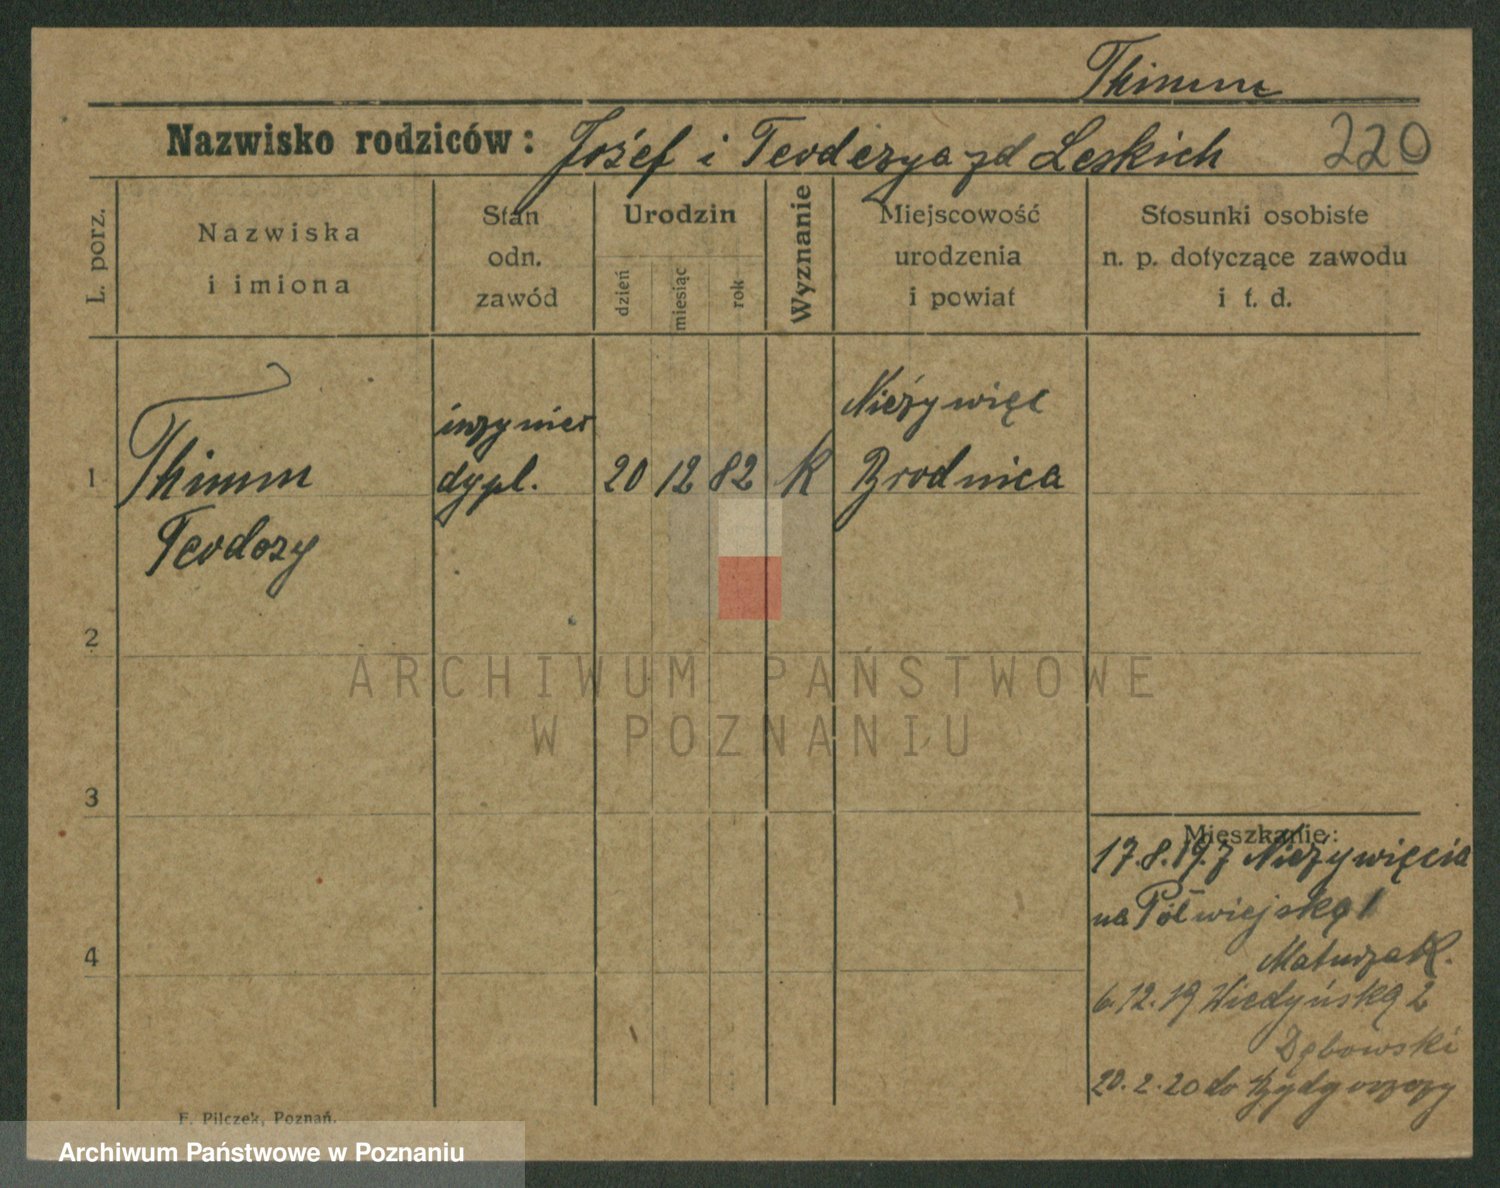 Thimm
Nazwisko rodziców: Józef i Teodozya zd Leskich 220
L. porz.
Nazwiska
i imiona
Stan
odn.
zawód
Urodzin
dzień
miesiąc
rok
Wyznanie
Miejscowość
urodzenia
i powiat
Stosunki osobiste
n. p. dotyczące zawodu
i t. d.
1
Thimm
Teodozy
inżynier
dypl.
20 12 82 K
Nieżywięć
Brodnica
2
ARCHIWUM PAŃSTWOWE
W POZNANIU
3
4
Mieszkanie:
17.8.19. z Nieżywięcia
na Półwiejską 1
Maturzak.
6.12.19 Wiedyńską 2
Dębowski
20.2.20 do Bydgoszczy
F. Pilczek, Poznań.
Archiwum Państwowe w Poznaniu